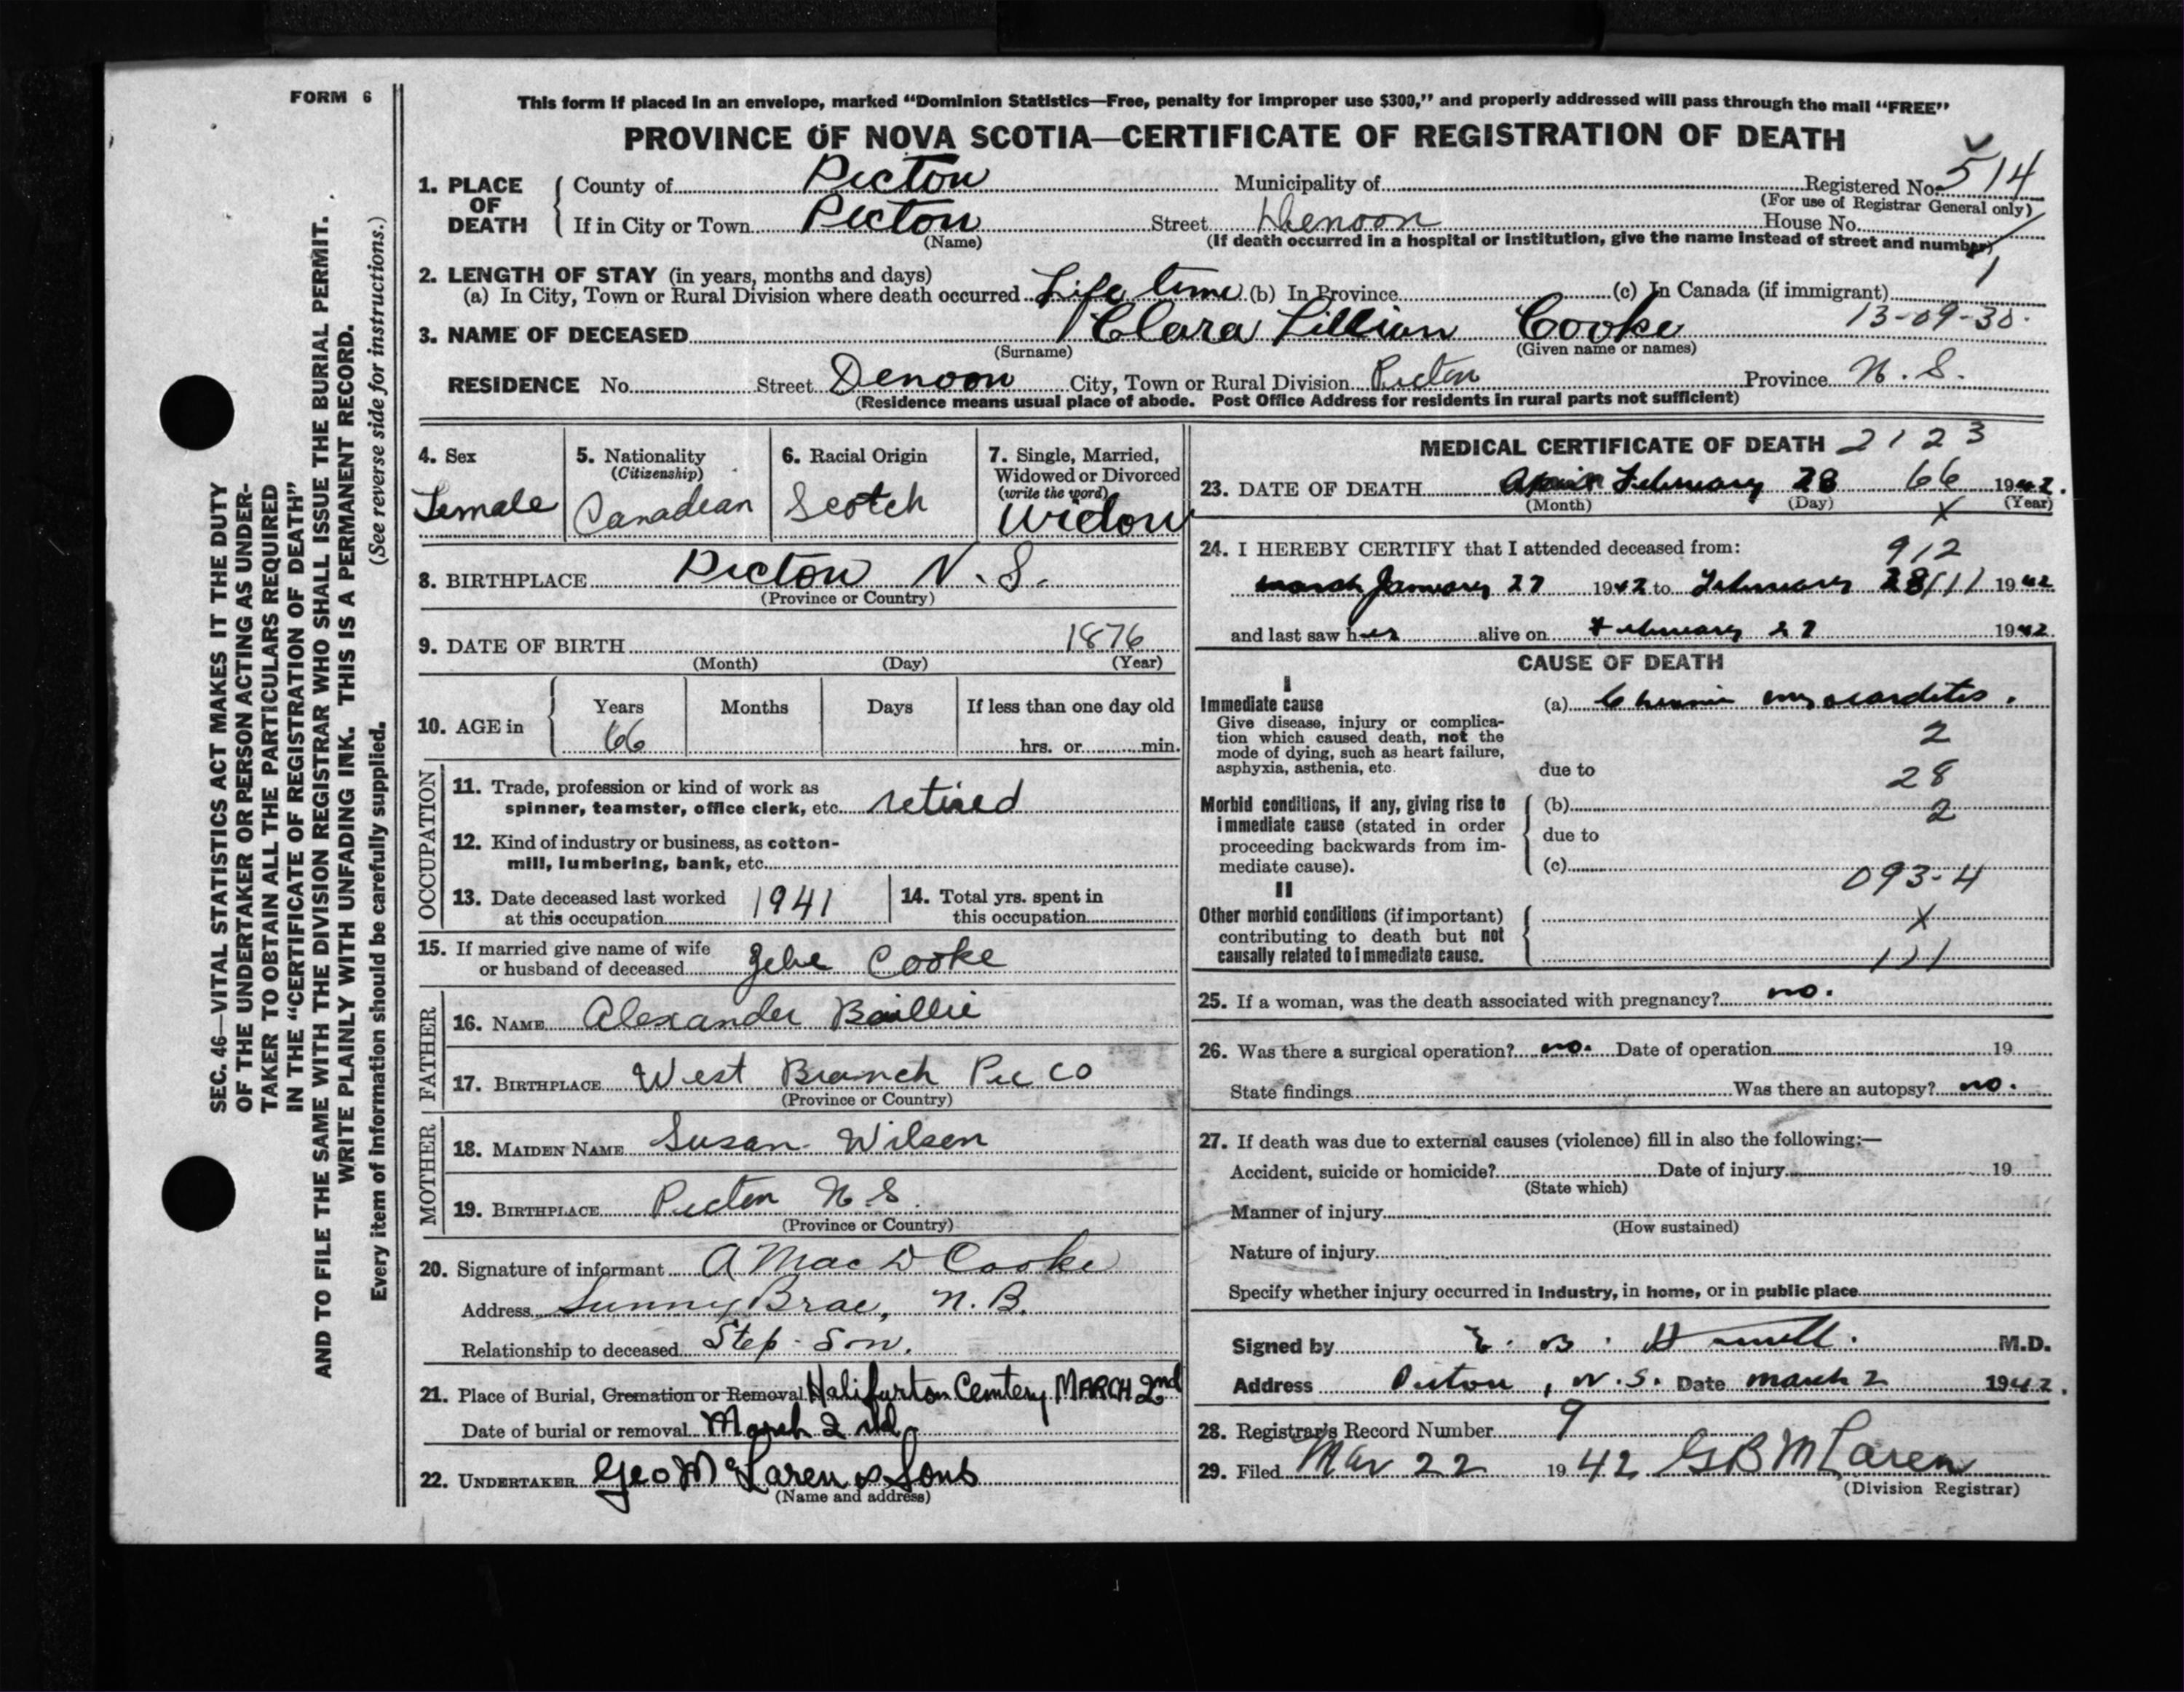 FORM 6
This form if placed in an envelope, marked “Dominion Statistics—Free, penalty for improper use $300,” and properly addressed will pass through the mail “FREE”
PROVINCE OF NOVA SCOTIA—CERTIFICATE OF REGISTRATION OF DEATH
1. PLACE OF DEATH
County of Pictou Municipality of Registered No. 514
(For use of Registrar General only)
If in City or Town Pictou Street Denoon House No.
(Name) (If death occurred in a hospital or institution, give the name instead of street and number)
2. LENGTH OF STAY (in years, months and days)
(a) In City, Town or Rural Division where death occurred Life time (b) In Province (c) In Canada (if immigrant)
13-09-30
3. NAME OF DECEASED Clara Lillian Cooke
(Surname) (Given name or names)
RESIDENCE No. Street Denoon City, Town or Rural Division Pictou Province N. S.
(Residence means usual place of abode. Post Office Address for residents in rural parts not sufficient)
4. Sex Female
5. Nationality (Citizenship) Canadian
6. Racial Origin Scotch
7. Single, Married, Widowed or Divorced (write the word) Widow
8. BIRTHPLACE Pictou N. S.
(Province or Country)
9. DATE OF BIRTH 1876
(Month) (Day) (Year)
10. AGE in Years Months Days If less than one day old
66 hrs. or min.
OCCUPATION
11. Trade, profession or kind of work as
spinner, teamster, office clerk, etc. retired
12. Kind of industry or business, as cotton-
mill, lumbering, bank, etc.
13. Date deceased last worked
at this occupation 1941
14. Total yrs. spent in
this occupation
15. If married give name of wife
or husband of deceased Zebe Cooke
FATHER
16. NAME Alexander Baillie
17. BIRTHPLACE West Branch Pic Co
(Province or Country)
MOTHER
18. MAIDEN NAME Susan Wilson
19. BIRTHPLACE Pictou N S
(Province or Country)
20. Signature of informant A Mac D Cooke
Address Sunny Brae, N. B.
Relationship to deceased Step-Son.
21. Place of Burial, Cremation or Removal Haliburton Cemtery MARCH 2nd
Date of burial or removal March 2
22. UNDERTAKER Geo McLaren & Sons
(Name and address)
MEDICAL CERTIFICATE OF DEATH 2123
23. DATE OF DEATH February 28 66 1942.
(Month) (Day) (Year)
X
24. I HEREBY CERTIFY that I attended deceased from:
912
January 27 1942 to February 28 111 1942
and last saw her alive on February 27 1942.
CAUSE OF DEATH
I
Immediate cause (a) Chronic myocarditis.
Give disease, injury or complica-
tion which caused death, not the
mode of dying, such as heart failure,
asphyxia, asthenia, etc.
2
due to 28
Morbid conditions, if any, giving rise to
immediate cause (stated in order
proceeding backwards from im-
mediate cause).
(b) 2
due to
(c) 093-4
II
Other morbid conditions (if important)
contributing to death but not
causally related to immediate cause.
X
111
25. If a woman, was the death associated with pregnancy? no.
26. Was there a surgical operation? no. Date of operation 19
State findings Was there an autopsy? no.
27. If death was due to external causes (violence) fill in also the following:—
Accident, suicide or homicide? Date of injury 19
(State which)
Manner of injury
(How sustained)
Nature of injury
Specify whether injury occurred in industry, in home, or in public place
Signed by E. B. M.D.
Address Pictou, N. S. Date March 2 1942.
28. Registrar's Record Number 9
29. Filed Mar 22 1942 G B McLaren
(Division Registrar)
SEC. 46—VITAL STATISTICS ACT MAKES IT THE DUTY
OF THE UNDERTAKER OR PERSON ACTING AS UNDER-
TAKER TO OBTAIN ALL THE PARTICULARS REQUIRED
IN THE “CERTIFICATE OF REGISTRATION OF DEATH”
AND TO FILE THE SAME WITH THE DIVISION REGISTRAR WHO SHALL ISSUE THE BURIAL PERMIT.
WRITE PLAINLY WITH UNFADING INK. THIS IS A PERMANENT RECORD.
Every item of information should be carefully supplied. (See reverse side for instructions.)